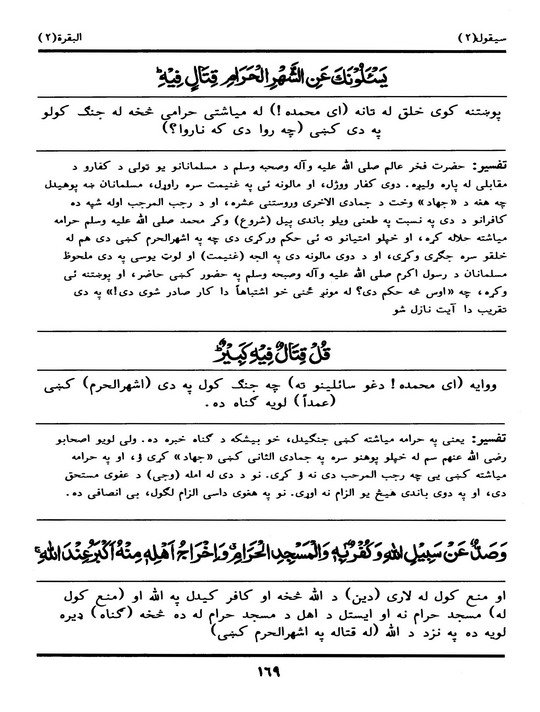 سیقول(۲) البقرة(۲)
يَسْـَٔلُوْنَكَ عَنِ الشَّهْرِ الْحَرَامِ قِتَالٍ فِيْهِ ؕ
پوښتنه کوی خلق له تانه (ای محمده!) له میاشتی حرامی څخه له جنګ کولو
په دی کښی (چه روا دی که ناروا؟)
تفسیر: حضرت فخر عالم صلی الله علیه وآله وصحبه وسلم د مسلمانانو یو تولی د کفارو د
مقابلی له پاره ولیږه. دوی کفار ووژل، او مالونه ئی په غنیمت سره راوړل، مسلمانان ښه پوهیدل
چه هغه د «جهاد» وخت د جمادی الاخری وروستنی عشره، او د رجب المرجب اوله شپه ده
کافرانو د دی په نسبت په طعنی ویلو باندی پیل (شروع) وکړ محمد صلی الله علیه وسلم حرامه
میاشته حلاله کړه، او خپلو امتیانو ته ئی حکم ورکړی دی چه په اشهرالحرم کښی دی هم له
خلقو سره جګړی وکړی، او د دوی مالونه دی په الجه (غنیمت) او لوټ یوسی په دی ملحوظ
مسلمانان د رسول اکرم صلی الله علیه وآله وصحبه وسلم په حضور کښی حاضر، او پوښتنه ئی
وکړه، چه «اوس څه حکم دی؟ له مونږ څخنی خو اشتباهاً دا کار صادر شوی دی!» په دی
تقریب دا آیت نازل شو
قُلْ قِتَالٌ فِيْهِ كَبِيْرٌ ؕ
ووایه (ای محمده! دغو سائلینو ته) چه جنګ کول په دی (اشهرالحرم) کښی
(عمداً) لویه ګناه ده.
تفسیر: یعنی په حرامه میاشته کښی جنګیدل، خو بیشکه د ګناه خبره ده. ولی لویو اصحابو
رضی الله عنهم سم له خپلو پوهنو سره په جمادی الثانی کښی «جهاد» کړی ؤ، او په حرامه
میاشته کښی یی چه رجب المرحب دی نه ؤ کړی. نو د دی له امله (وجی) د عفوی مستحق
دی، او په دوی باندی هیڅ یو الزام نه اوړی. نو په هغوی داسی الزام لګول، بی انصافی ده.
وَصَدٌّ عَنْ سَبِيْلِ اللّٰهِ وَكُفْرٌۢ بِهٖ وَالْمَسْجِدِ الْحَرَامِ ۗ وَاِخْرَاجُ اَهْلِهٖ مِنْهُ اَكْبَرُ عِنْدَ اللّٰهِ ۚ
او منع کول له لاری (دین) د الله څخه او کافر کیدل په الله او (منع کول
له) مسجد حرام نه او ایستل د اهل د مسجد حرام له ده څخه (ګناه) ډیره
لویه ده په نزد د الله (له قتاله په اشهرالحرم کښی)
۱۶۹